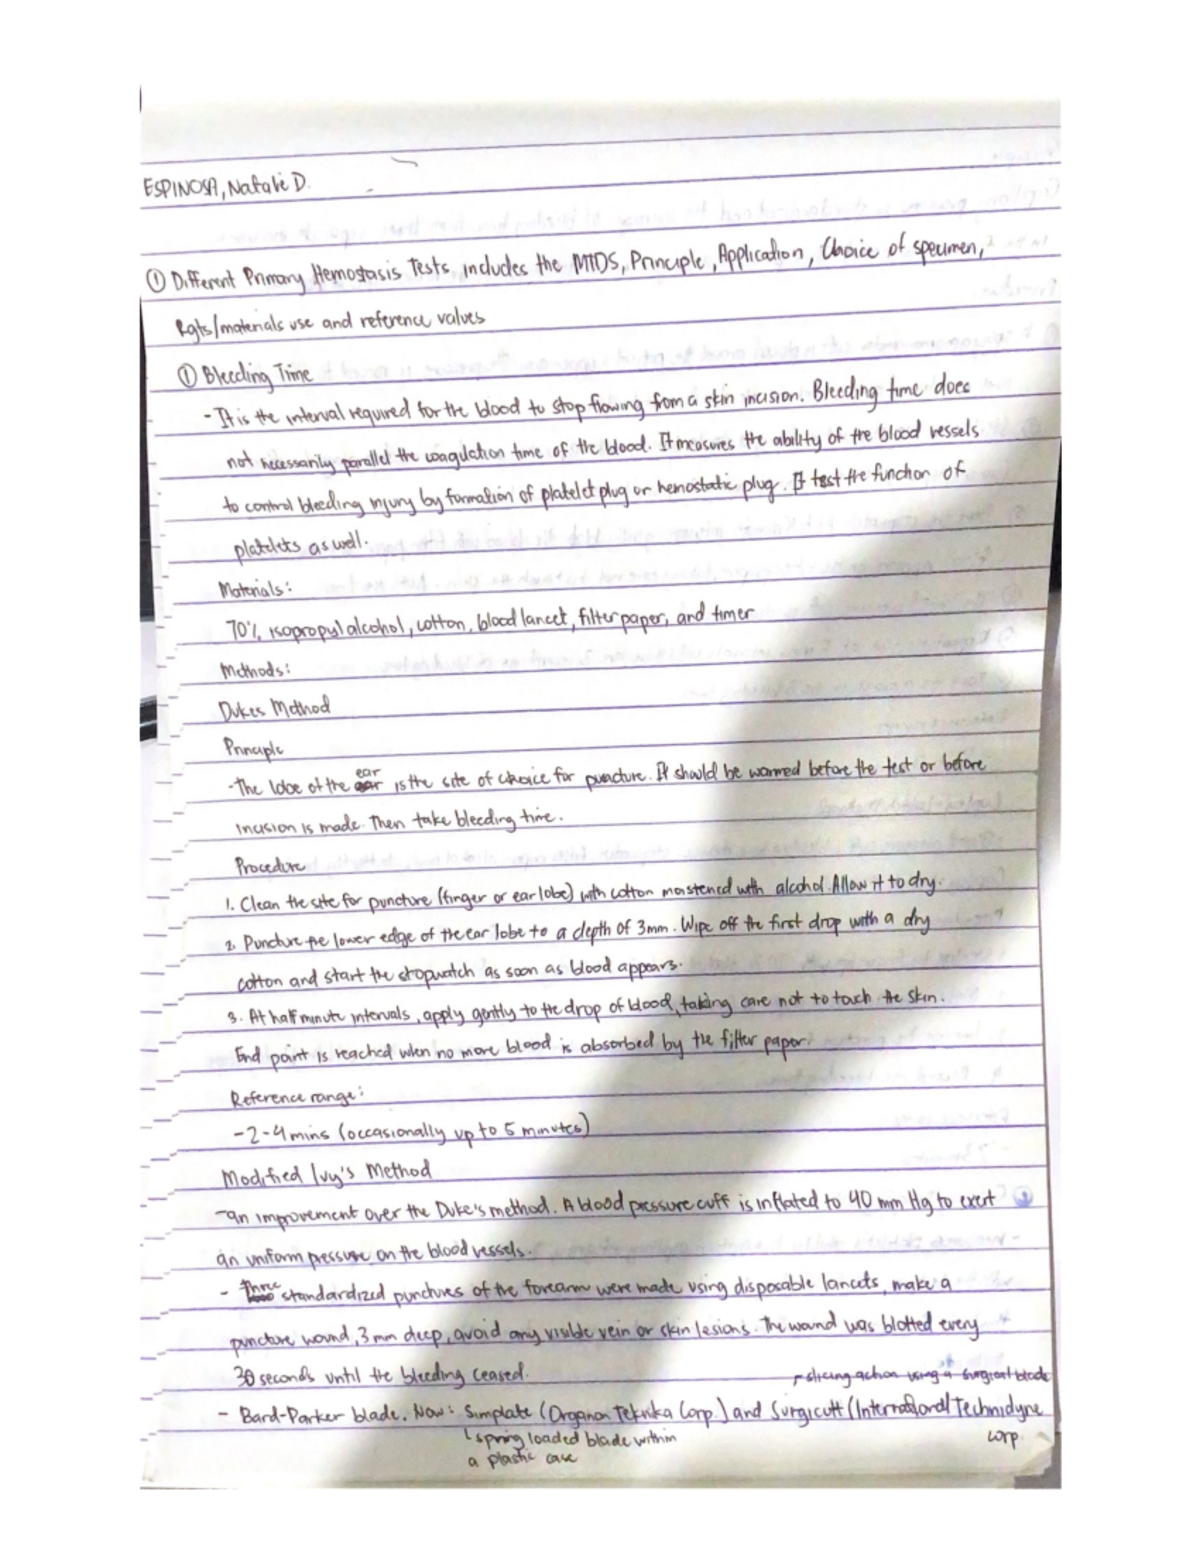 ESPINOSA, Natalie D.
① Different Primary Hemostasis Tests includes the MTDS, Principle, Application, Choice of specimen,
Rgts/materials use and reference values
① Bleeding Time
- It is the interval required for the blood to stop flowing from a skin incision. Bleeding time does
not necessarily parallel the coagulation time of the blood. It measures the ability of the blood vessels
to control bleeding injury by formation of platelet plug or hemostatic plug. It test the function of
platelets as well.
Materials:
70% isopropyl alcohol, cotton, blood lancet, filter paper, and timer
Methods:
Dukes Method
Principle
- The lobe of the ear is the site of choice for puncture. It should be warmed before the test or before
incision is made. Then take bleeding time.
Procedure
1. Clean the site for puncture (finger or ear lobe) with cotton moistened with alcohol. Allow it to dry.
2. Puncture the lower edge of the ear lobe to a depth of 3mm. Wipe off the first drop with a dry
cotton and start the stopwatch as soon as blood appears.
3. At half minute intervals, apply gently to the drop of blood, taking care not to touch the skin.
End point is reached when no more blood is absorbed by the filter paper.
Reference range:
- 2-4 mins (occasionally up to 5 minutes)
Modified Ivy's Method
- an improvement over the Duke's method. A blood pressure cuff is inflated to 40 mm Hg to exert
an uniform pressure on the blood vessels.
- Three standardized punctures of the forearm were made using disposable lancets, make a
puncture wound, 3 mm deep, avoid any visible vein or skin lesions. The wound was blotted every
30 seconds until the bleeding ceased.
slicing action using a surgical blade
- Bard-Parker blade. Now: Simplate (Organon Teknika Corp.) and Surgicutt (International Technidyne
corp.
spring loaded blade within
a plastic case